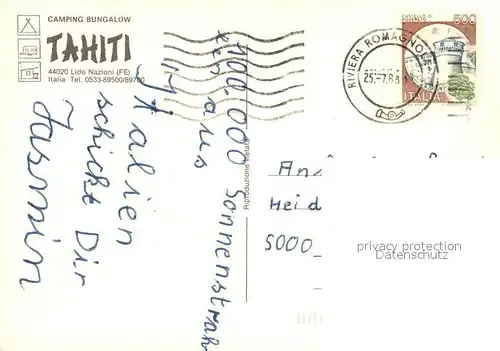 CAMPING BUNGALOW
TAHITI
44020 Lido Nazioni (FE)
Italia Tel. 0533-89500/89700
100.000 Sonnenstrah
len aus
Italien
schickt Dir
Jasmin
Riproduzione vietata
RIVIERA ROMAGNOLE
25.-7.88
CASTELLO DI
500
ITALIA
An
Heid
5000
privacy protection
Datenschutz